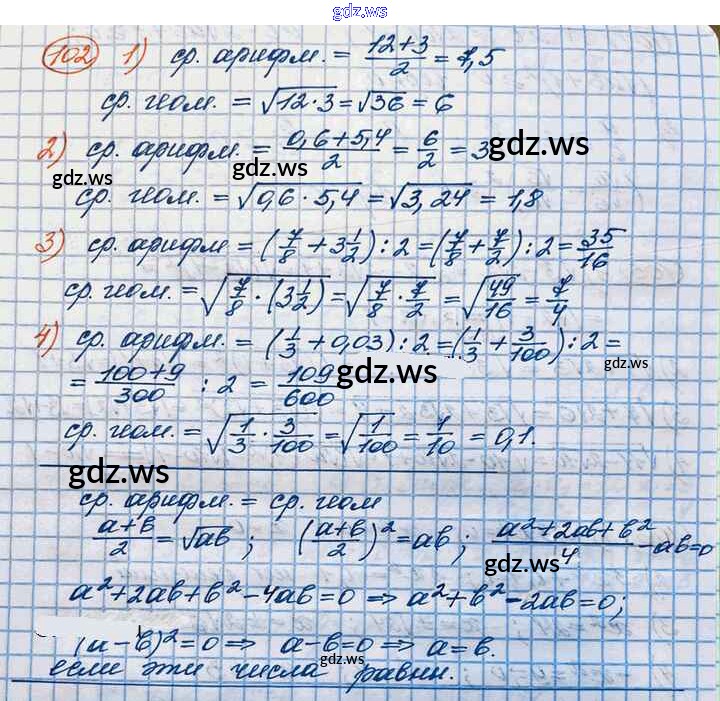 gdz.ws
102 1) ср. арифм. = (12+3)/2 = 7,5
ср. геом. = √(12·3) = √36 = 6
2) ср. арифм. = (0,6+5,4)/2 = 6/2 = 3 gdz.ws
gdz.ws gdz.ws
ср. геом. = √(0,6·5,4) = √3,24 = 1,8
gdz.ws
3) ср. арифм = (7/8 + 3 1/2) : 2 = (7/8 + 7/2) : 2 = 35/16
ср. геом. = √(7/8 · (3 1/2)) = √(7/8 · 7/2) = √(49/16) = 7/4
4) ср. арифм. = (1/3 + 0,03) : 2 = (1/3 + 3/100) : 2 =
gdz.ws gdz.ws
= (100+9)/300 : 2 = 109/600
ср. геом. = √(1/3 · 3/100) = √(1/100) = 1/10 = 0,1.
gdz.ws
ср. арифм. = ср. геом
(a+b)/2 = √ab ; ((a+b)/2)² = ab ; (a²+2ab+b²)/4 - ab=0
gdz.ws
a²+2ab+b²-4ab=0 ⇒ a²+b²-2ab=0;
(a-b)²=0 ⇒ a-b=0 ⇒ a=b.
gdz.ws
если эти числа равны.